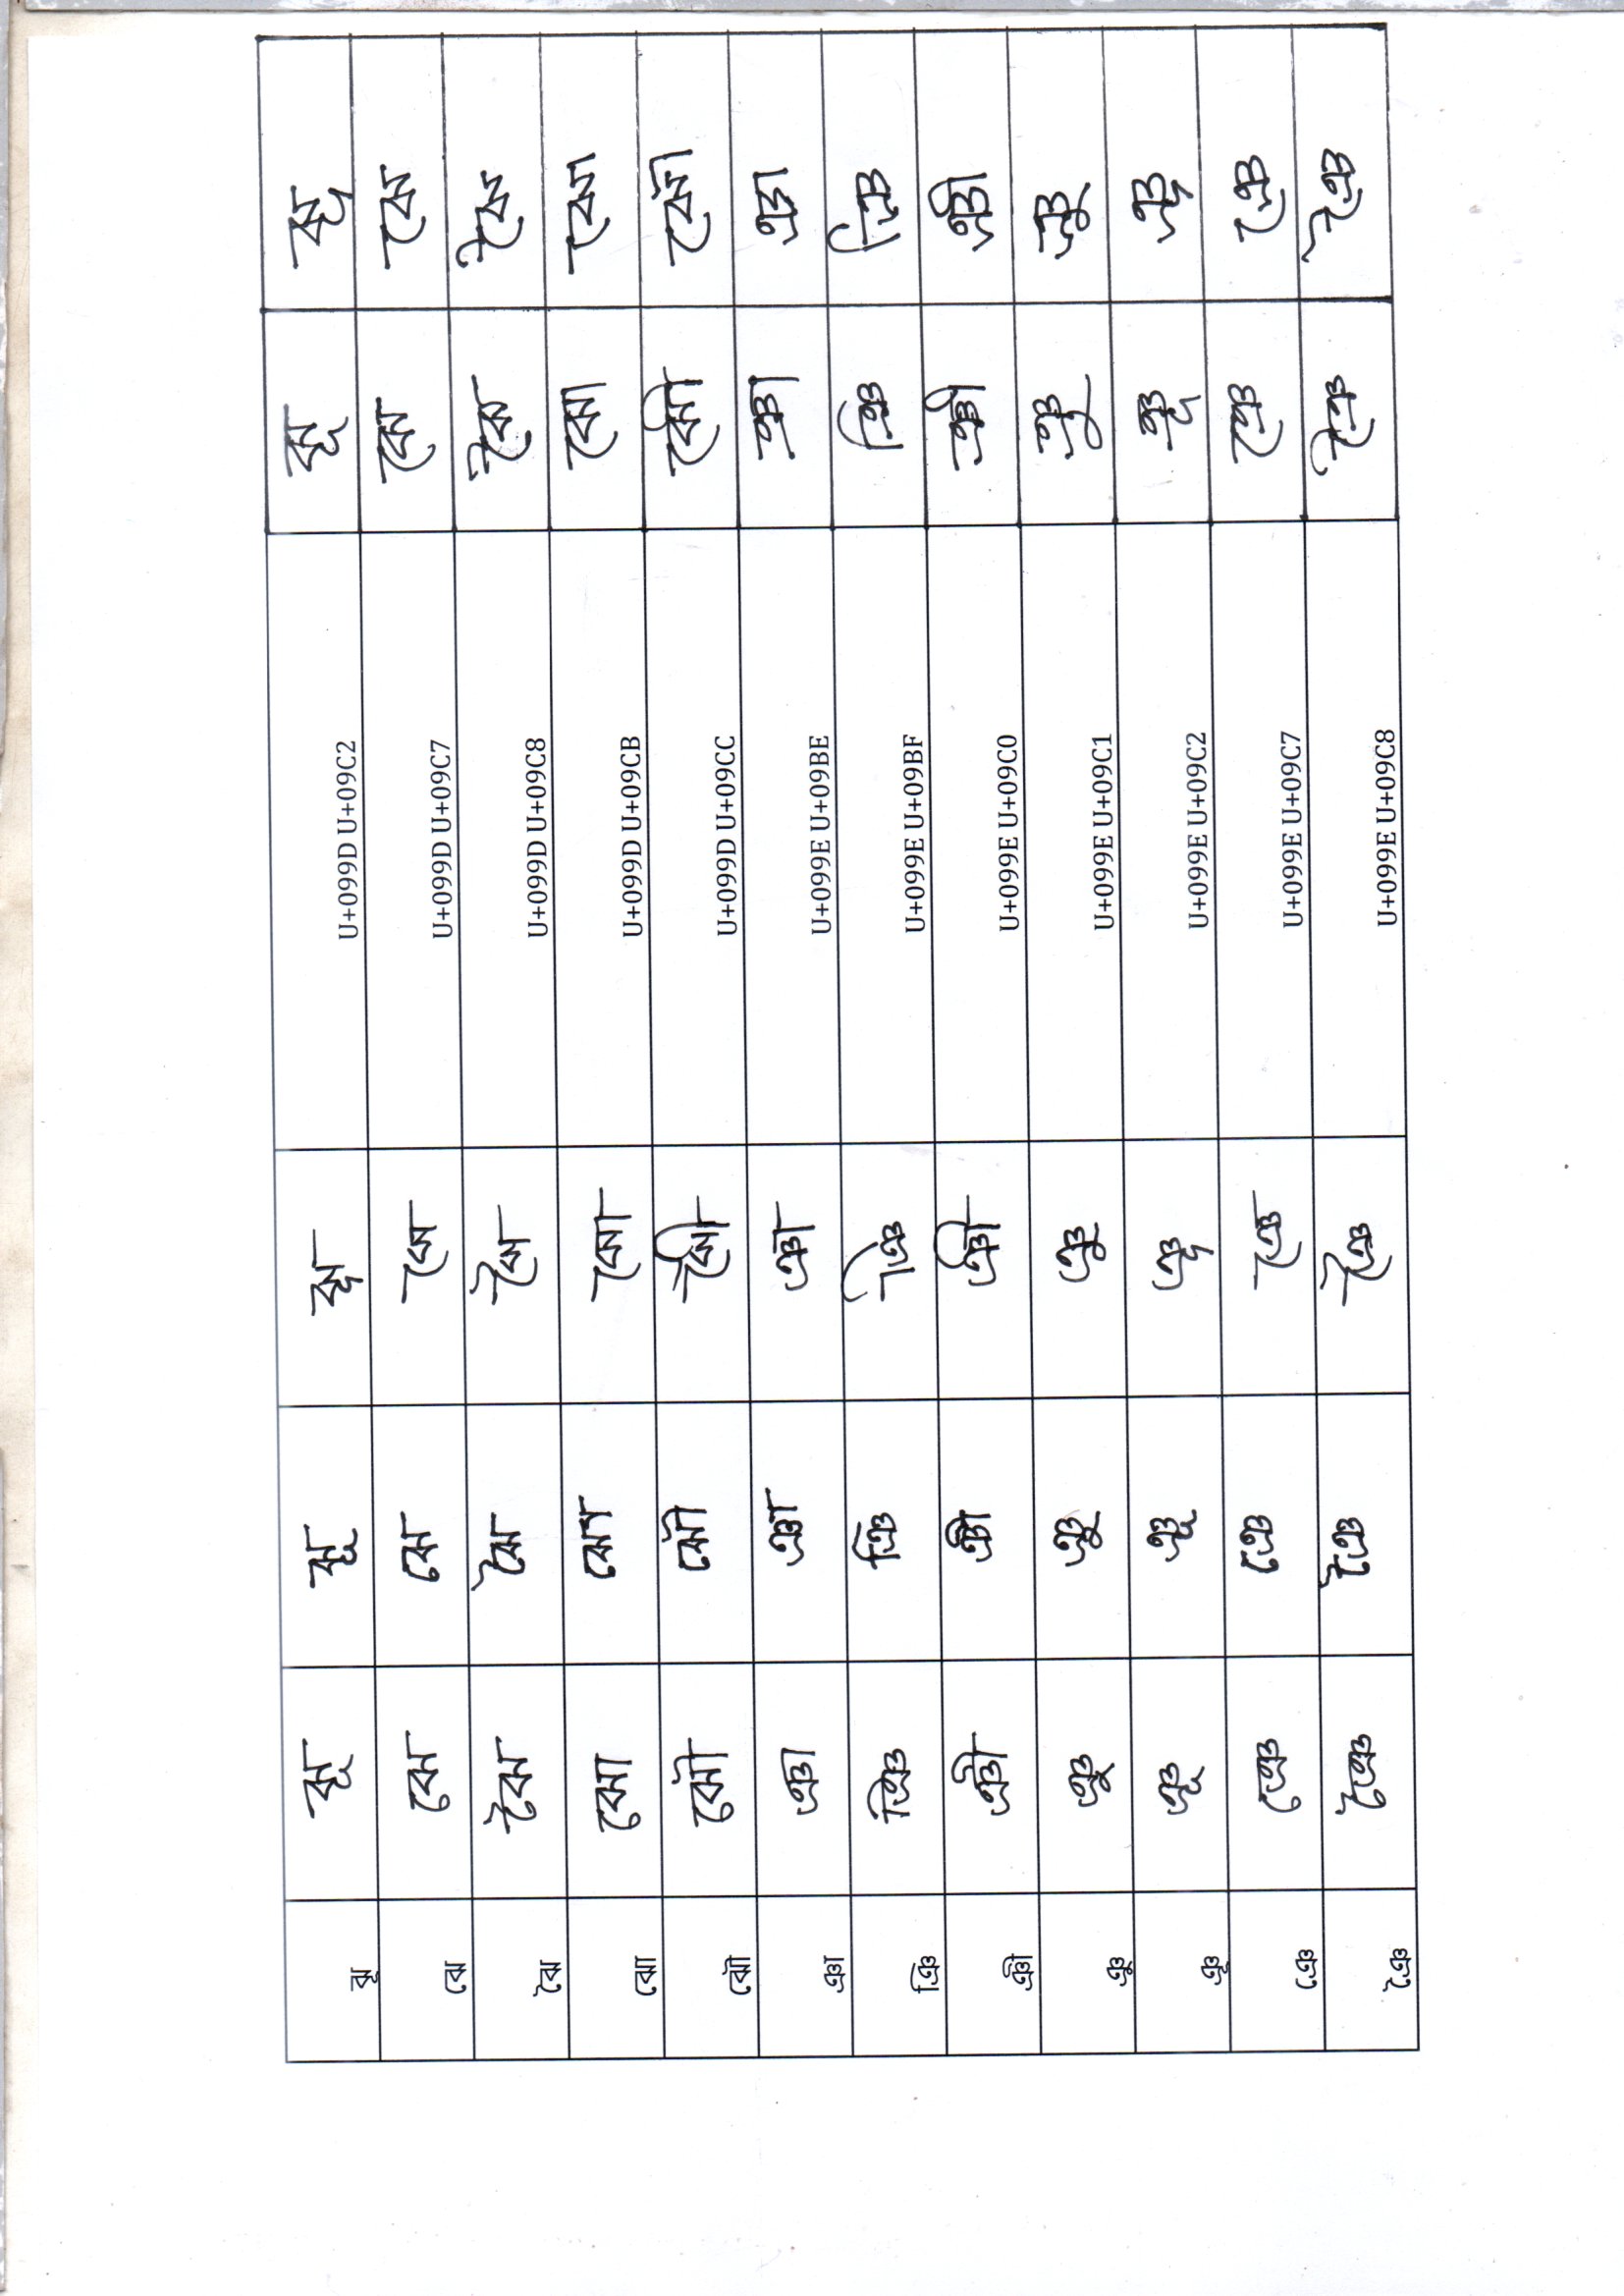 ঝূ ঝূ ঝূ ঝূ U+099D U+09C2 ঝূ ঝূ
ঝে ঝে ঝে ঝে U+099D U+09C7 ঝে ঝে
ঝৈ ঝৈ ঝৈ ঝৈ U+099D U+09C8 ঝৈ ঝৈ
ঝো ঝো ঝো ঝো U+099D U+09CB ঝো ঝো
ঝৌ ঝৌ ঝৌ ঝৌ U+099D U+09CC ঝৌ ঝৌ
ঞা ঞা ঞা ঞা U+099E U+09BE ঞা ঞা
ঞি ঞি ঞি ঞি U+099E U+09BF ঞি ঞি
ঞী ঞী ঞী ঞী U+099E U+09C0 ঞী ঞী
ঞু ঞু ঞু ঞু U+099E U+09C1 ঞু ঞু
ঞূ ঞূ ঞূ ঞূ U+099E U+09C2 ঞূ ঞূ
ঞে ঞে ঞে ঞে U+099E U+09C7 ঞে ঞে
ঞৈ ঞৈ ঞৈ ঞৈ U+099E U+09C8 ঞৈ ঞৈ